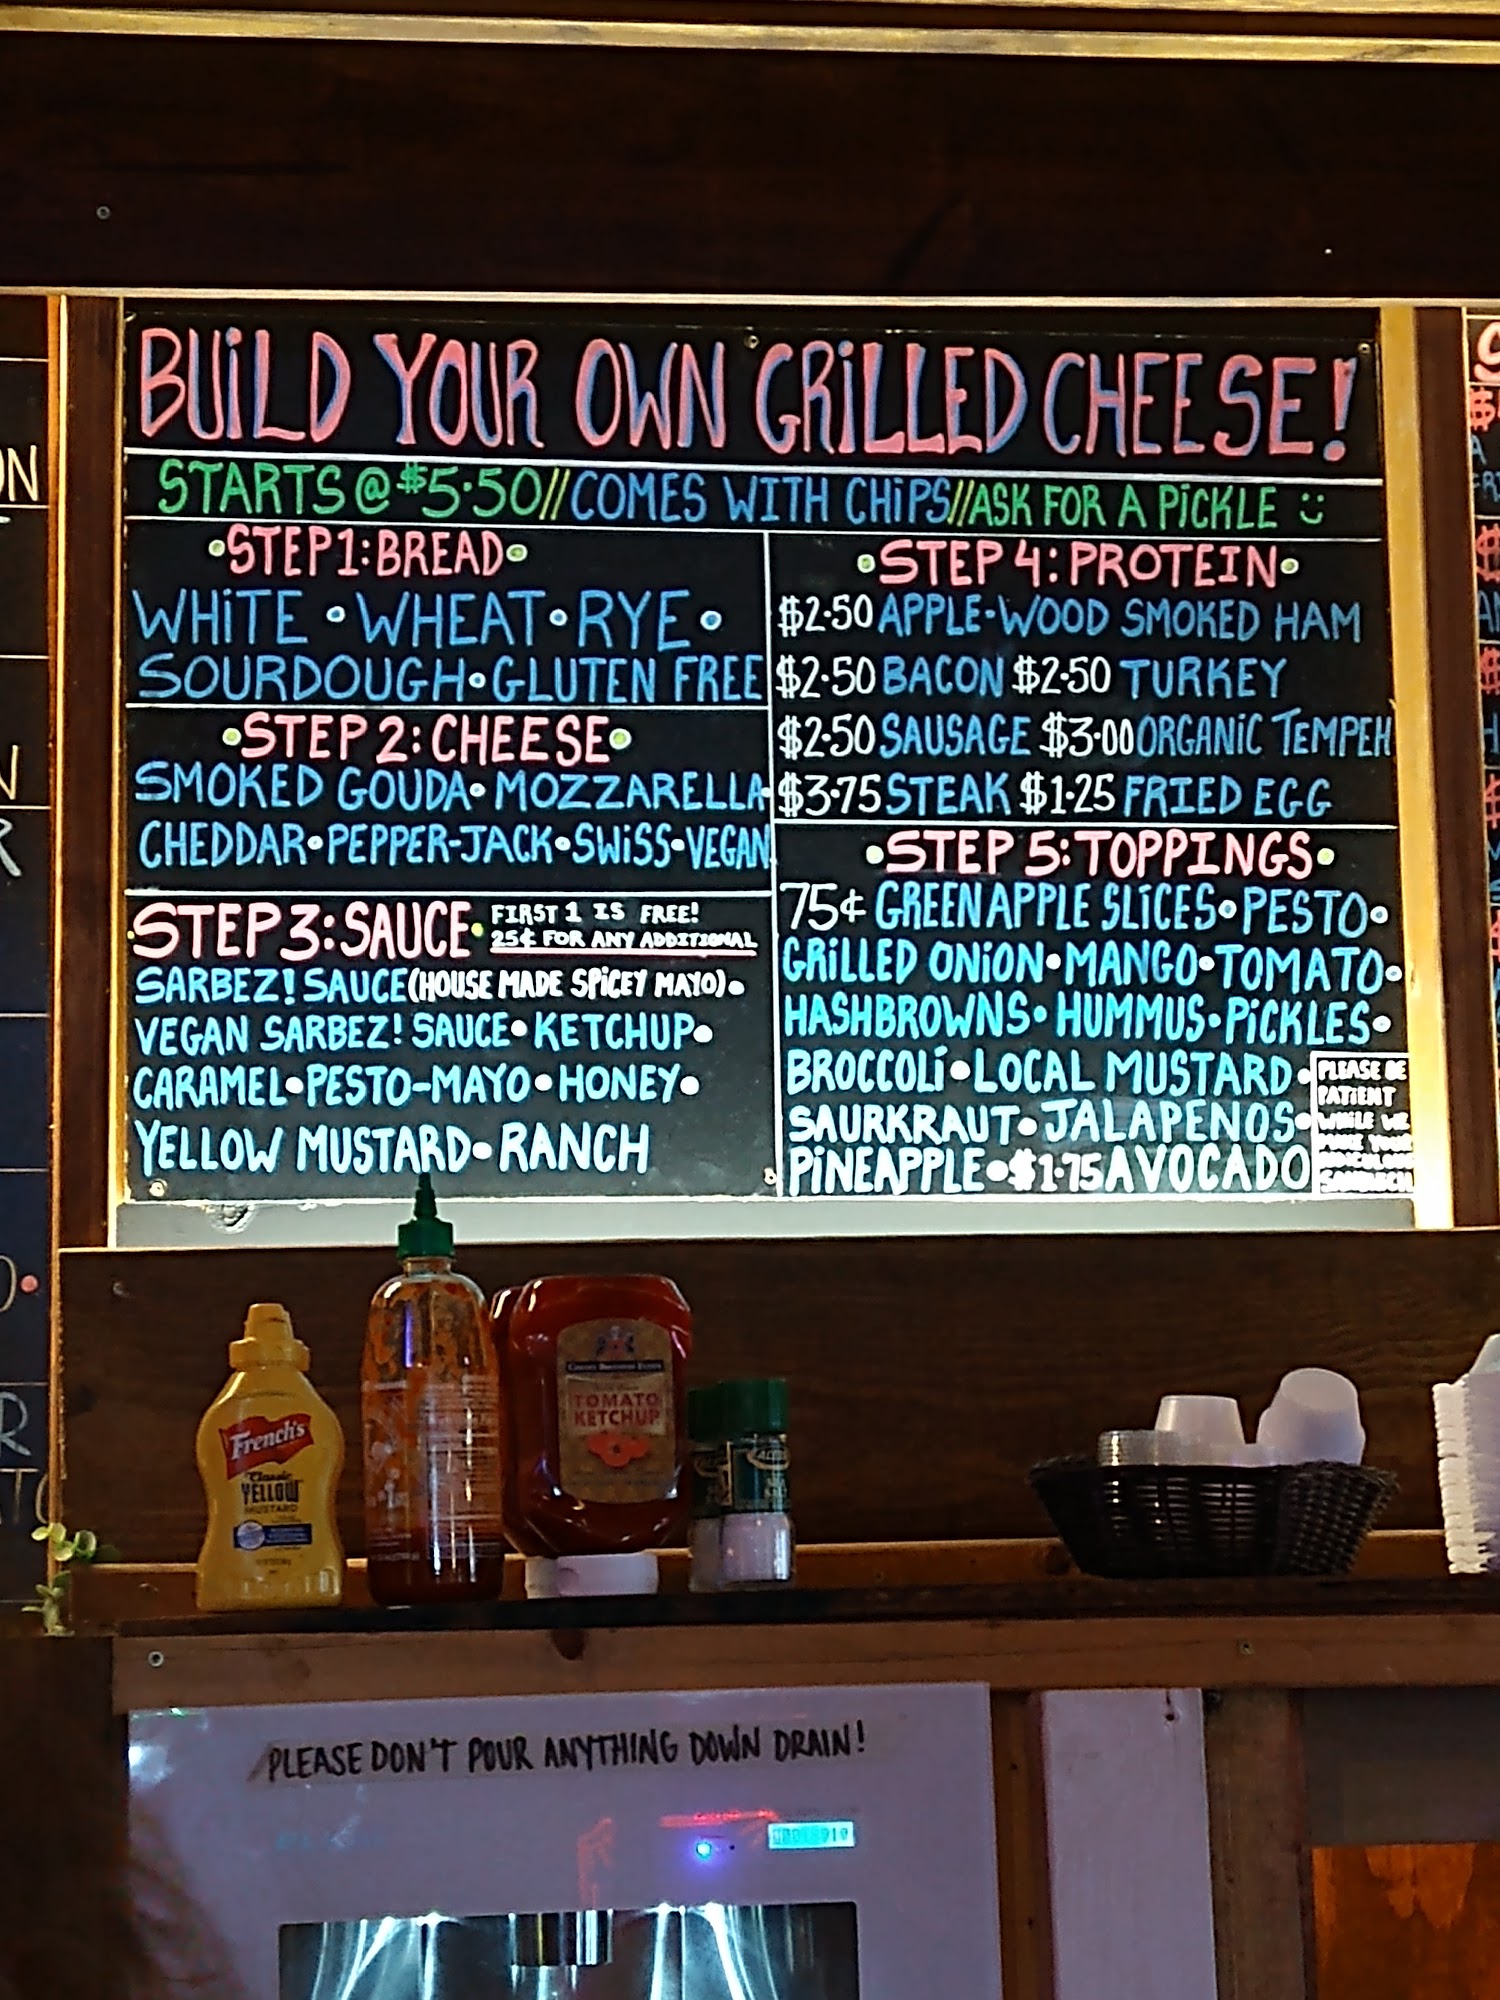 BUiLD YOUR OWN GRiLLED CHEESE!
STARTS @ $5.50//COMES WITH CHiPS//ASK FOR A PiCKLE
STEP 1: BREAD
WHiTE • WHEAT • RYE •
SOURDOUGH • GLUTEN FREE
STEP 2: CHEESE
SMOKED GOUDA • MOZZARELLA •
CHEDDAR • PEPPER-JACK • SWiSS • VEGAN
STEP 3: SAUCE
FIRST 1 IS FREE!
25¢ FOR ANY ADDITIONAL
SARBEZ! SAUCE (HOUSE MADE SPiCEY MAYO) •
VEGAN SARBEZ! SAUCE • KETCHUP •
CARAMEL • PESTO-MAYO • HONEY •
YELLOW MUSTARD • RANCH
STEP 4: PROTEIN
$2.50 APPLE-WOOD SMOKED HAM
$2.50 BACON $2.50 TURKEY
$2.50 SAUSAGE $3.00 ORGANiC TEMPEH
$3.75 STEAK $1.25 FRIED EGG
STEP 5: TOPPINGS
75¢ GREEN APPLE SLiCES • PESTO •
GRiLLED ONiON • MANGO • TOMATO •
HASHBROWNS • HUMMUS • PiCKLES •
BROCCOLi • LOCAL MUSTARD •
SAURKRAUT • JALAPENOS •
PiNEAPPLE • $1.75 AVOCADO
PLEASE BE
PATiENT
WHiLE WE
French's
Classic
YELLOW
MUSTARD
TOMATO
KETCHUP
PLEASE DON'T POUR ANYTHING DOWN DRAIN!